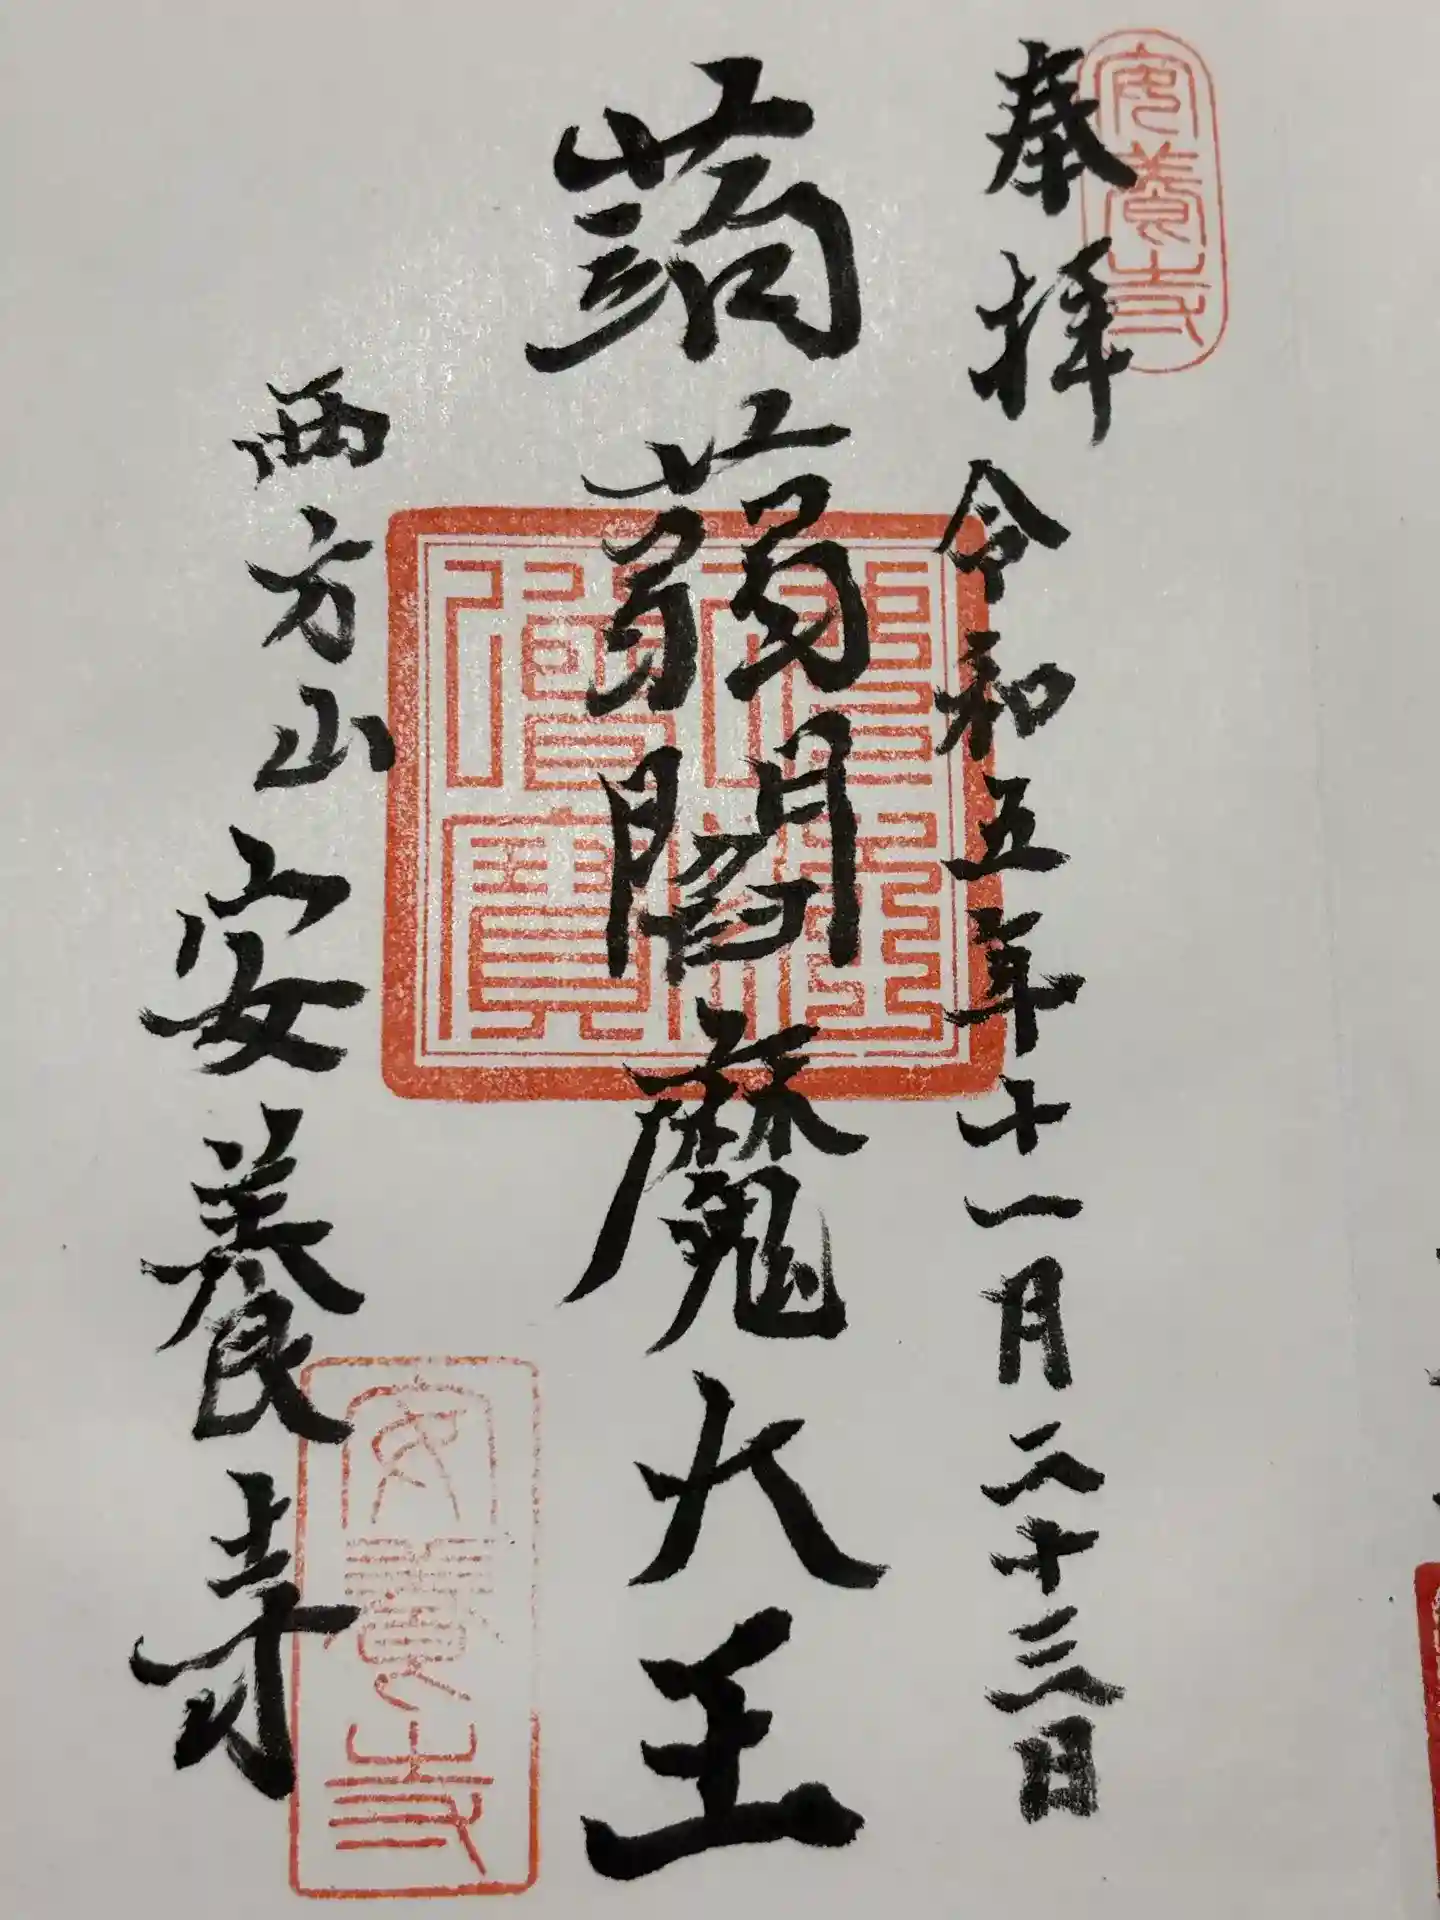 奉拝 令和五年十一月二十三日
蒟蒻閻魔大王
西方山 安養寺
安養寺
佛法僧寶
安養寺